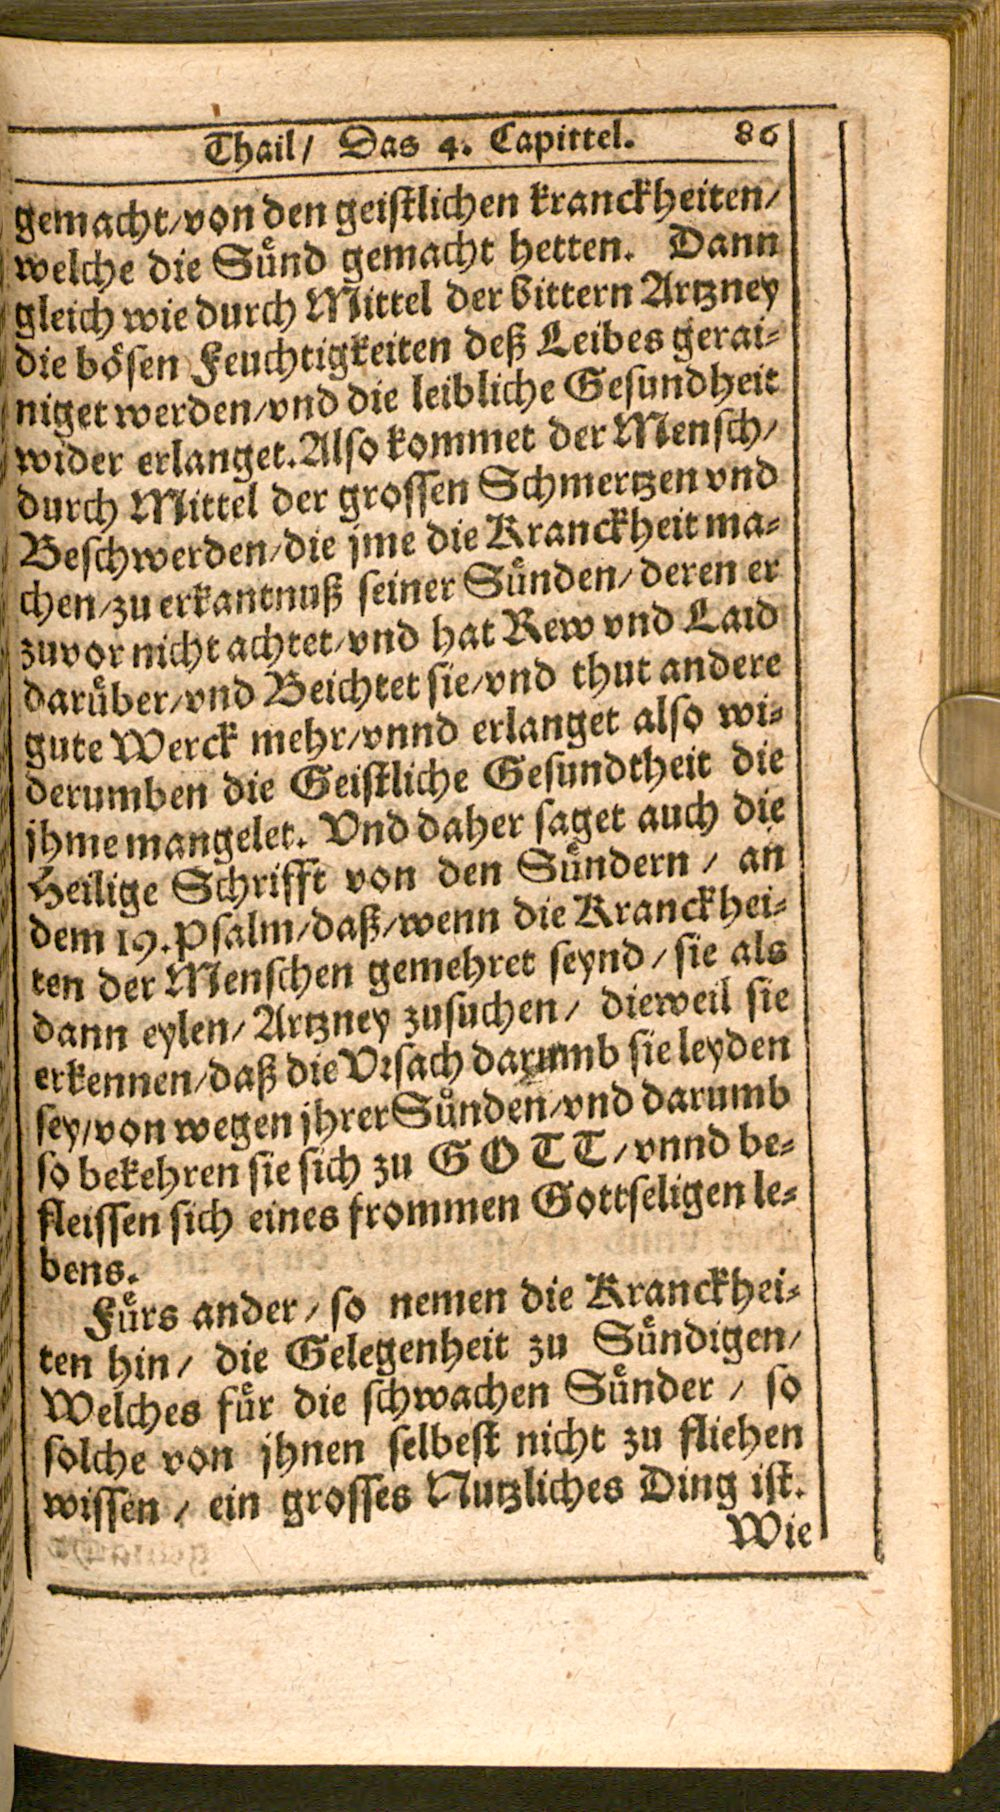 Thail/ Das 4. Capittel. 86
gemacht/von den geistlichen kranckheiten/
welche die Sünd gemacht hetten. Dann
gleich wie durch Mittel der bittern Artzney
die bösen Feuchtigkeiten deß Leibes gerai-
niget werden/vnd die leibliche Gesundheit
wider erlanget. Also kommet der Mensch/
durch Mittel der grossen Schmertzen vnd
Beschwerden/die jme die Kranckheit ma-
chen/zu erkantnuß seiner Sünden/deren er
zuvor nicht achtet/vnd hat Rew vnd Laid
darüber/vnd Beichtet sie/vnd thut andere
gute Werck mehr/vnnd erlanget also wi-
derumben die Geistliche Gesundtheit die
jhme mangelet. Vnd daher saget auch die
Heilige Schrifft von den Sündern / an
dem 19. Psalm/daß/wenn die Kranckhei-
ten der Menschen gemehret seynd / sie als
dann eylen/ Artzney zusuchen / dieweil sie
erkennen/daß die Vrsach darumb sie leyden
sey/von wegen jhrer Sünden/vnd darumb
so bekehren sie sich zu GOTT/vnnd be-
fleissen sich eines frommen Gottseligen le-
bens.
Fürs ander / so nemen die Kranckhei-
ten hin/ die Gelegenheit zu Sündigen/
Welches für die schwachen Sünder / so
solche von jhnen selbest nicht zu fliehen
wissen / ein grosses Nutzliches Ding ist.
Wie